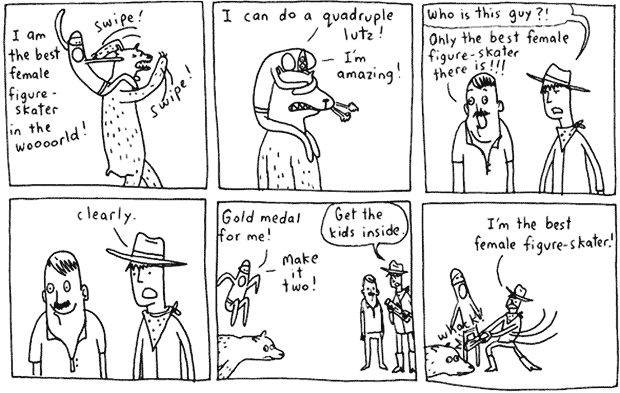 I am
the best
female
figure-
skater
in the
woooorld!
swipe!
swipe!
I can do a quadruple
lutz!
I'm
amazing!
Who is this guy?!
Only the best female
figure-skater
there is!!!
clearly.
Gold medal
for me!
make
it
two!
Get the
kids inside.
I'm the best
female figure-skater!
whack!